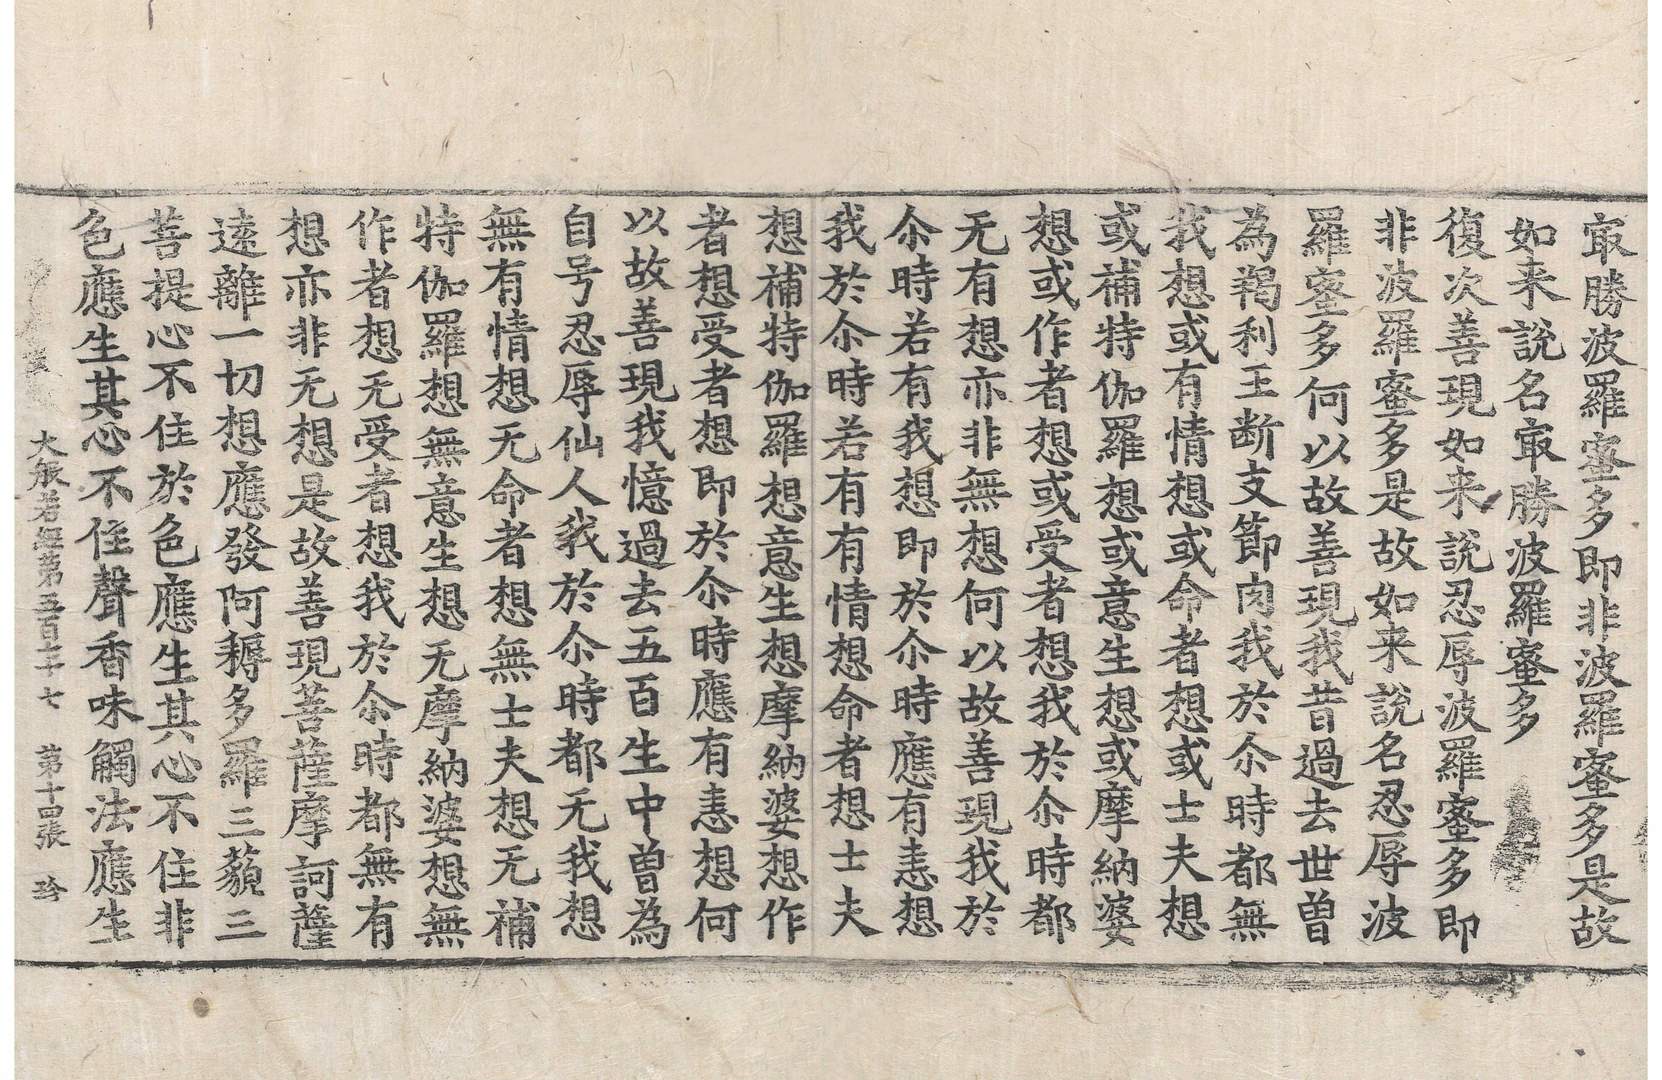 㝡勝波羅蜜多即非波羅蜜多是故
如来說名㝡勝波羅蜜多
復次善現如来說忍辱波羅蜜多即
非波羅蜜多是故如来說名忍辱波
羅蜜多何以故善現我昔過去世曽
為羯利王断支節肉我於尒時都無
我想或有情想或命者想或士夫想
或補特伽羅想或意生想或摩納婆
想或作者想或受者想我於尒時都
无有想亦非無想何以故善現我於
尒時若有我想即於尒時應有恚想
我於尒時若有有情想命者想士夫
想補特伽羅想意生想摩納婆想作
者想受者想即於尒時應有恚想何
以故善現我憶過去五百生中曽為
自号忍辱仙人我於尒時都无我想
無有情想无命者想無士夫想无補
特伽羅想無意生想无摩納婆想無
作者想无受者想我於尒時都無有
想亦非无想是故善現菩薩摩訶薩
遠離一切想應發阿耨多羅三藐三
菩提心不住於色應生其心不住非
色應生其心不住聲香味觸法應生
大般若經第五百七十七 第十四張 玲